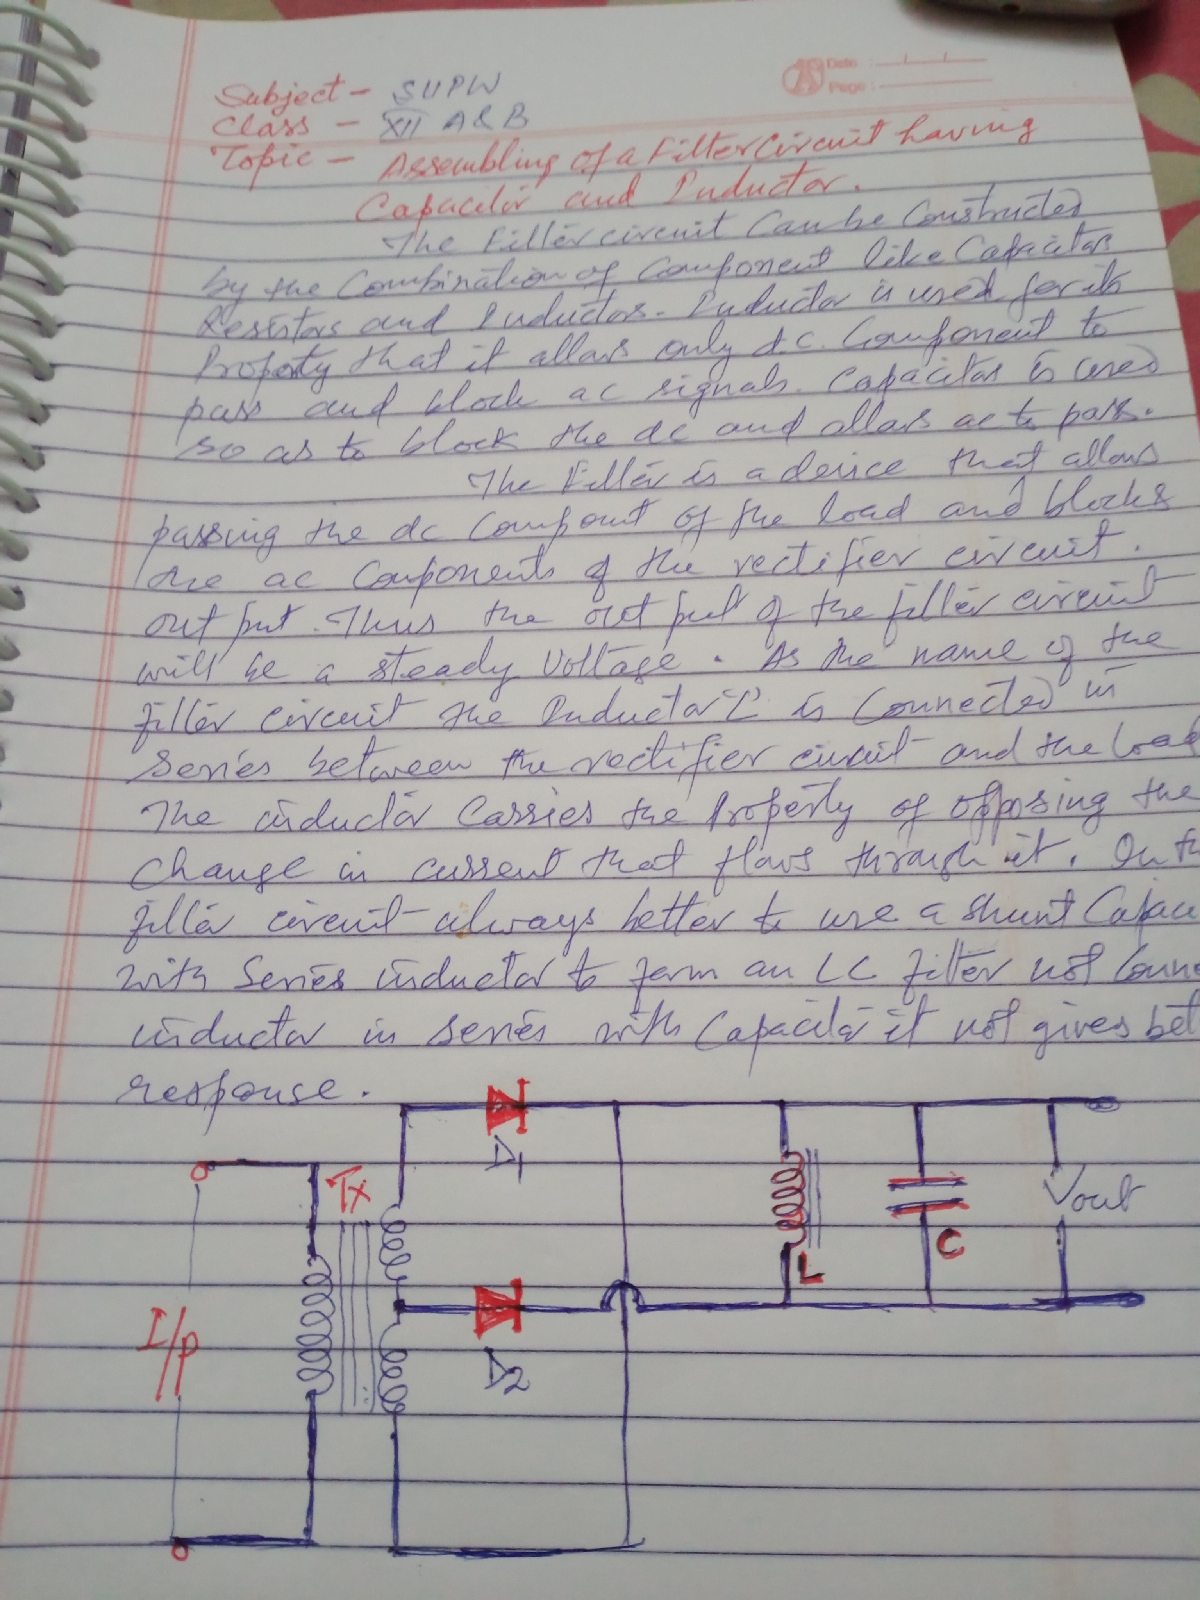 Date :
Page :
Subject - SUPW
Class - XII A & B
Topic - Assembling of a Filter Circuit having
Capacitor and Inductor.
The Filter circuit Can be Constructed
by the Combination of Component like Capacitor
Resistor and Inductor. Inductor is used for its
Property that it allows only dc. Component to
pass and block ac signals. Capacitor is used
so as to block the dc and allows ac to pass.
The Filter is a device that allows
passing the dc Compount of the load and blocks
the ac Components of the rectifier circuit.
out put. Thus the out put of the filter circuit
will be a steady Voltage. As the name of the
filter circuit the Inductor 'L' is Connected in
Series between the rectifier circuit and the Load
The inductor Carries the Property of opposing the
Change in current that flows through it. In
filter circuit always better to use a shunt
with Series inductor to form an LC filter not
inductor in series with Capacitor it not gives
response.
D1
Tx
Vout
C
L
I/P
D2